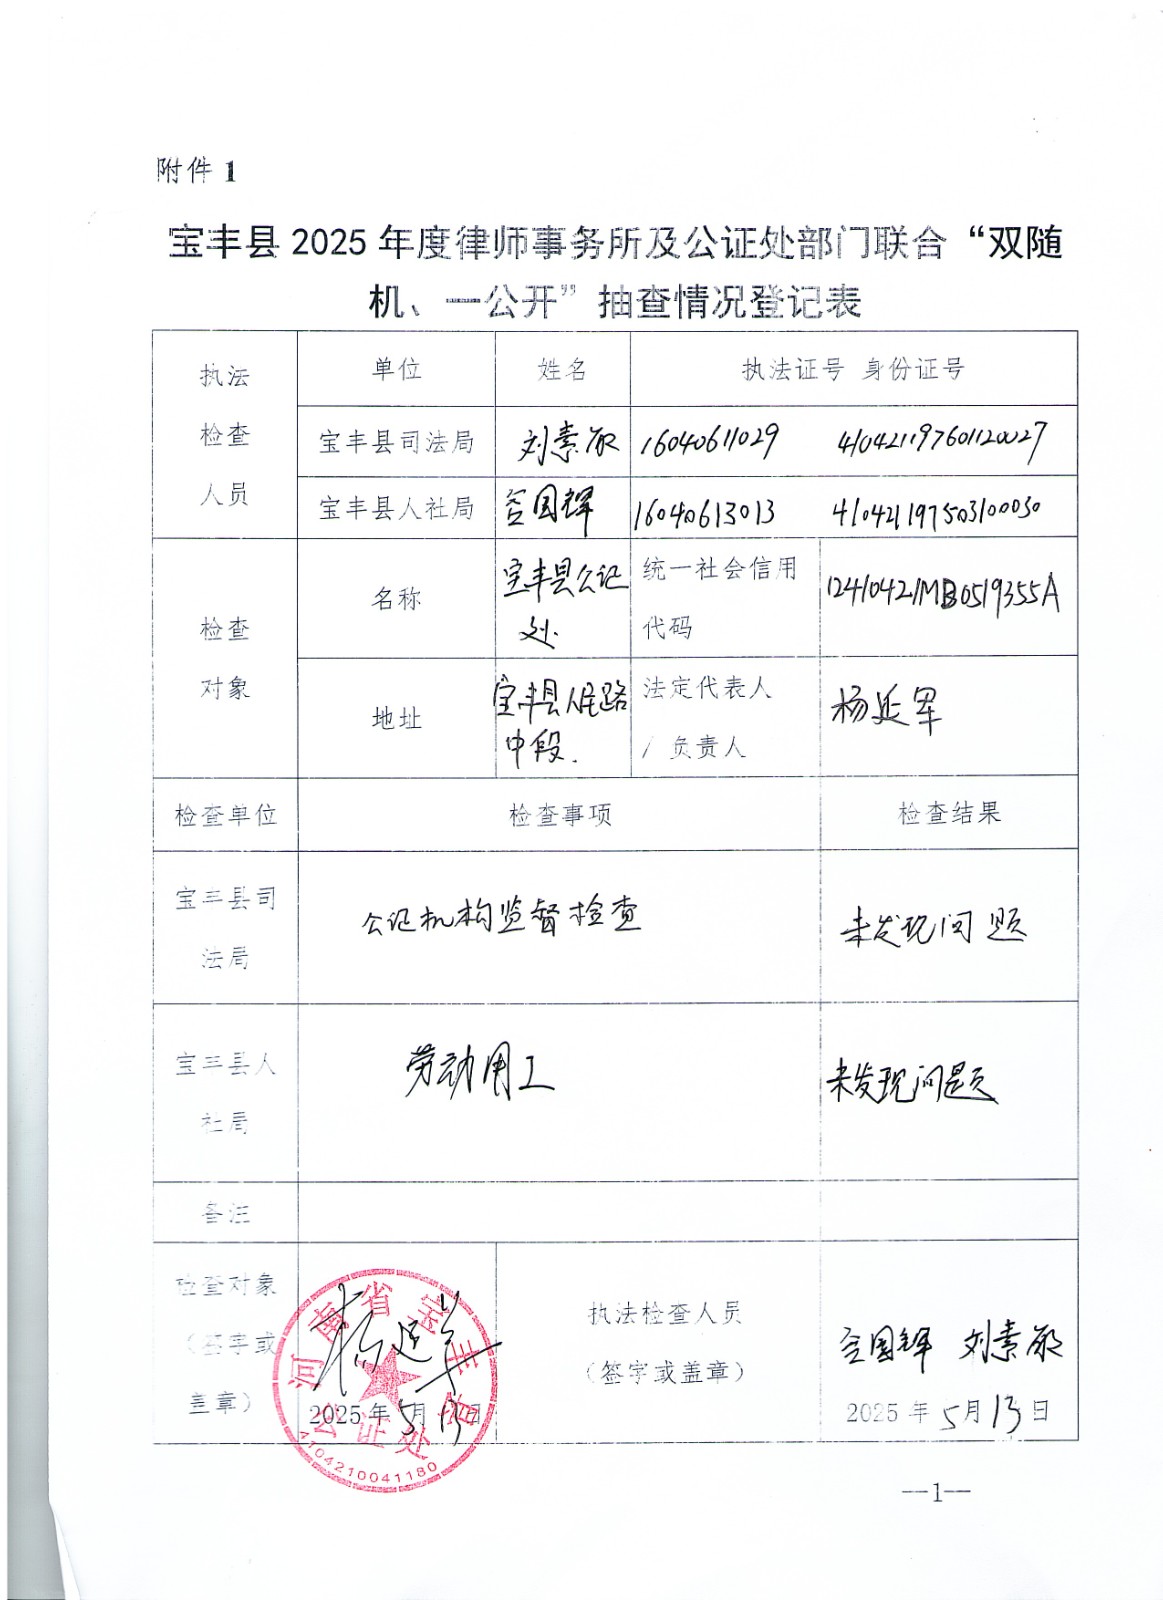 附件 1
宝丰县 2025 年度律师事务所及公证处部门联合“双随
机、一公开”抽查情况登记表
执法
检查
人员
单位 姓名 执法证号 身份证号
宝丰县司法局 刘素敏 16040611029 410421197601120027
宝丰县人社局 国辉 16040613013 410421197503100030
检查
对象
名称
宝丰县公证
处.
统一社会信用
代码
12410421MB0519355A
地址
宝丰县人民路
中段.
法定代表人
/ 负责人
杨延军
检查单位 检查事项 检查结果
宝丰县司
法局
公证机构监督检查
未发现问题
宝丰县人
社局
劳动用工
未发现问题
备注
检查对象
(签字或
盖章)
杨延军
2025年5月13日
河南省宝丰县
公证处
4104210041180
执法检查人员
(签字或盖章)
国辉 刘素敏
2025 年 5月 13日
—1—